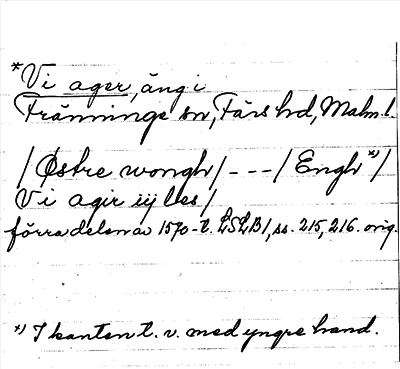 *Vi ager, äng i
Tränninge sn, Färs hd, Malm. l.
/ Østre wongh / - - - / Engh *) /
Vi agir iij les /
förra delen av 1570-t. LSLB1, ss. 215, 216. orig.
*) I kanten t. v. med yngre hand.